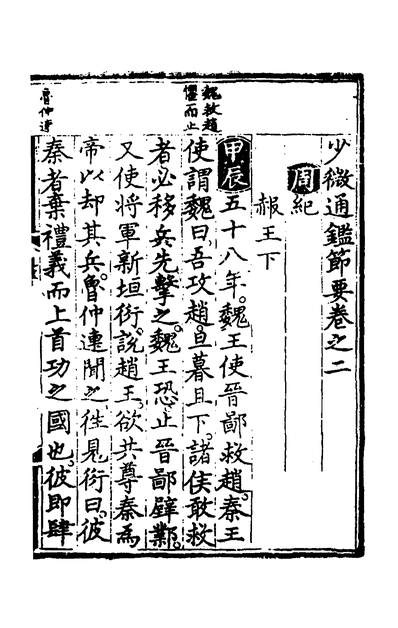 少微通鑑節要卷之二
周紀
赧王下
甲辰五十八年。魏王使晉鄙救趙。秦王
使謂魏曰。吾攻趙。旦暮且下。諸侯敢救
者必移兵先擊之。魏王恐。止晉鄙壁鄴。
又使將軍新垣衍。說趙王。欲共尊秦爲
帝以却其兵。魯仲連聞之。徃見衍曰。彼
秦者棄禮義而上首功之國也。彼即肆
魏救趙
懼而止
魯仲連